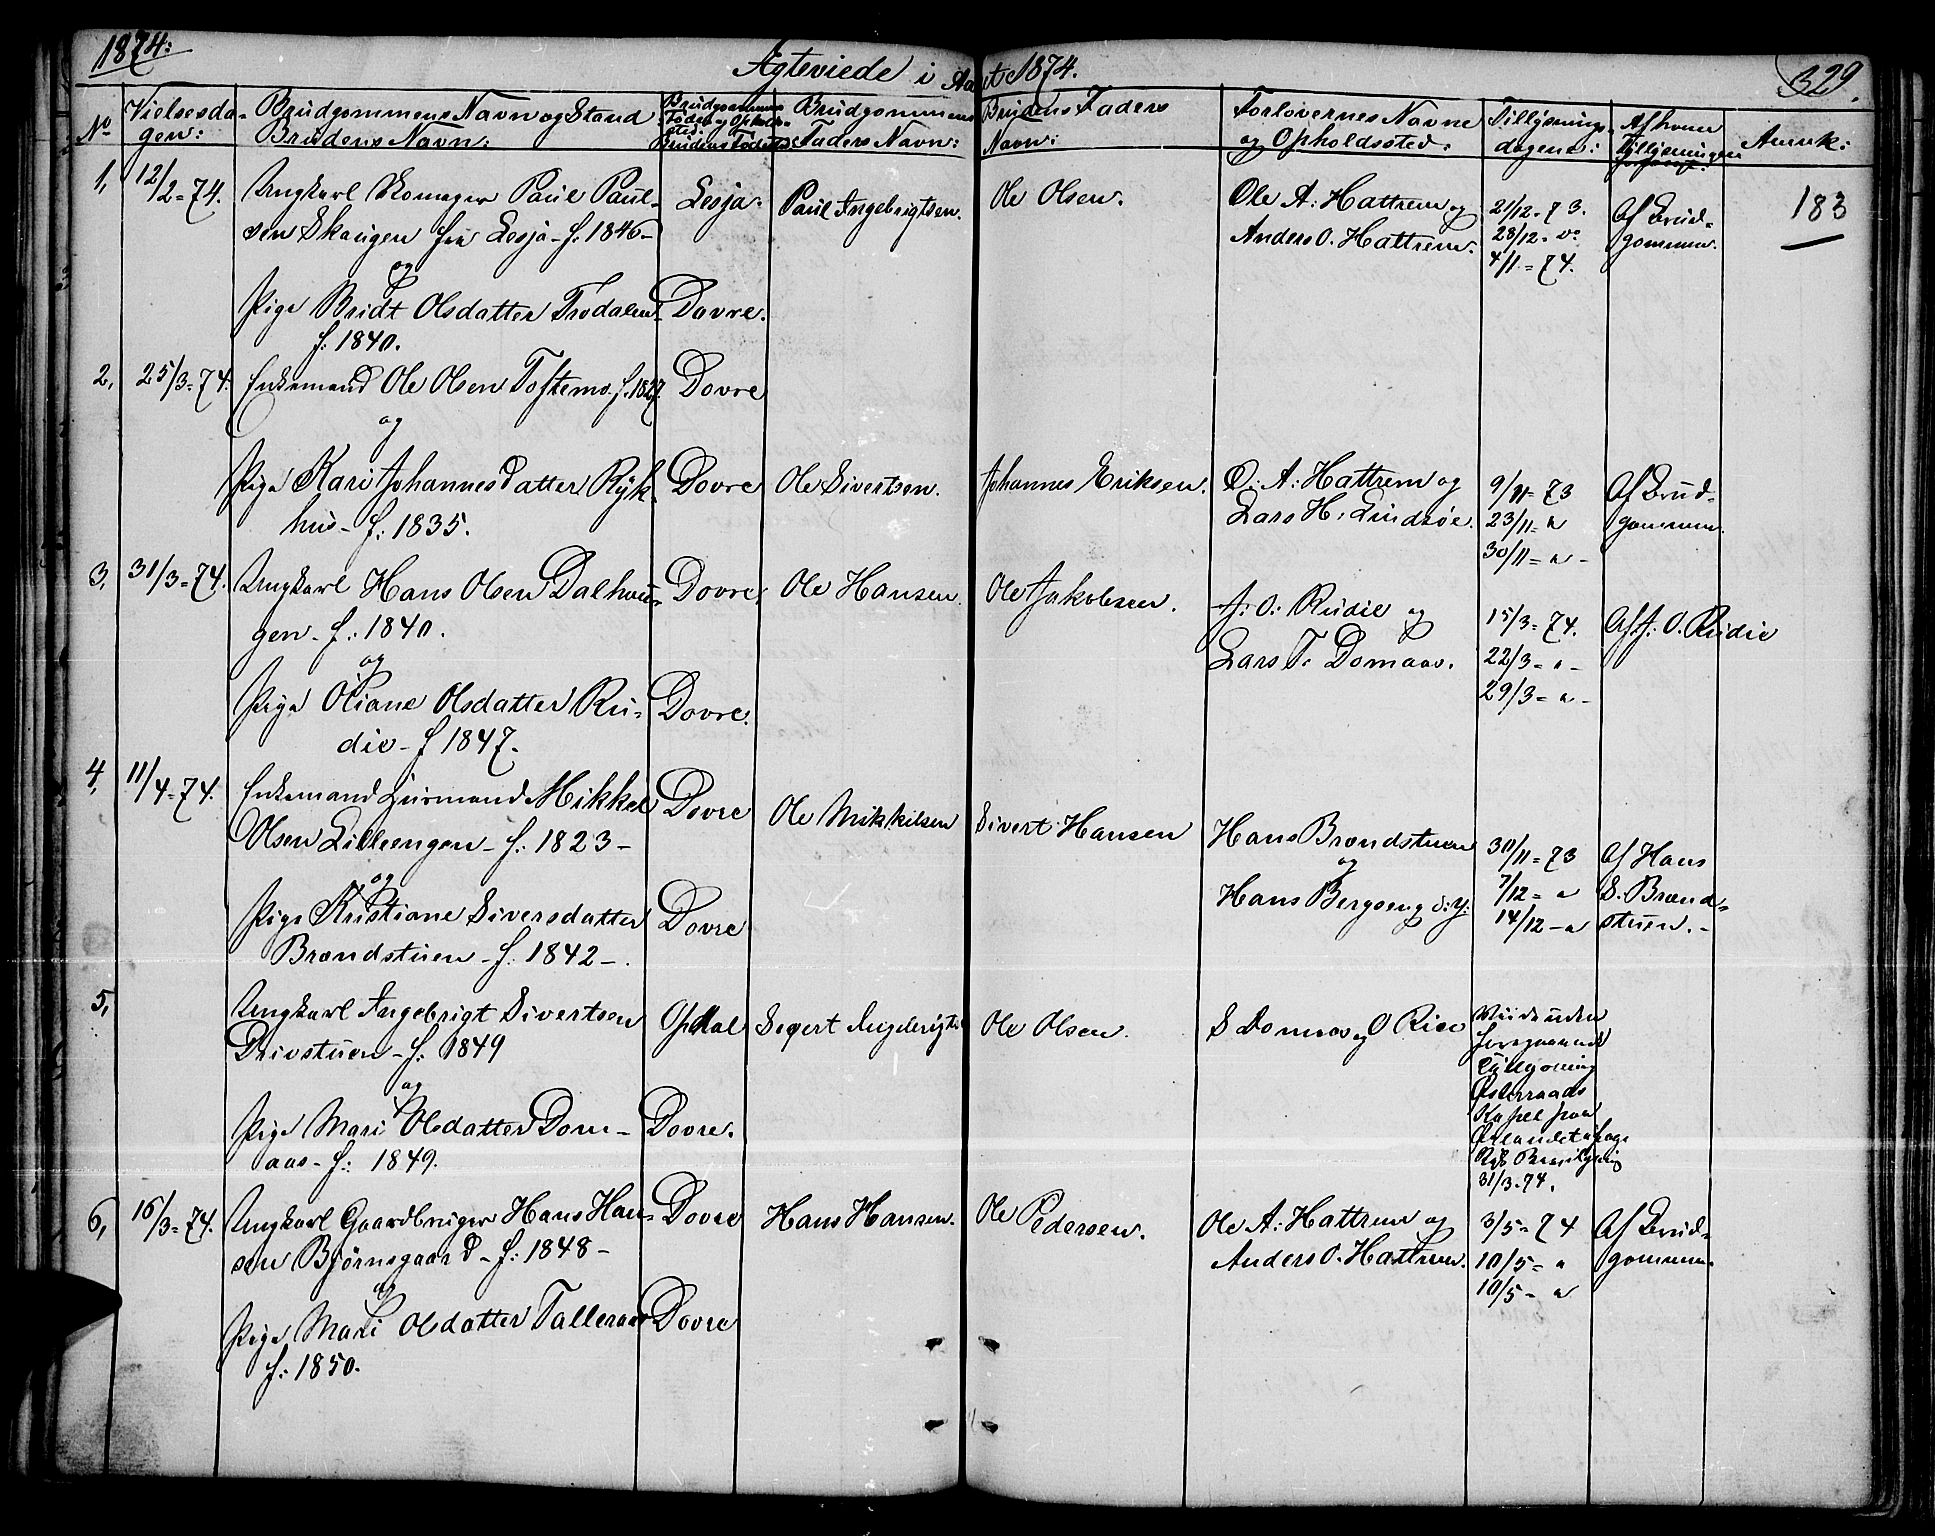 1874:
Agteviede i Aaret 1874.
329.
No
Vielsesda-
gen:
Brudgommens Navn og Stand
Brudens Navn:
Brudgommens
Føde og Opholds-
sted:
Brudens Fødested:
Brudgommens
Faders Navn:
Brudens Faders
Navn:
Forlovernes Navne
og Opholdssted:
Tillysnings-
dagene:
Af hvem
Tillysningen
Anmk:
1, 12/2=74. Ungkarl Skomager Paul Paul- Lesja: Paul Ingebrigtsen. Ole Olsen. Ole A: Hattrem og 21/12-73. Af Brud- 183
sen Skaugen fra Lesja- f. 1846- Anders O. Hattrem. 28/12- do gommen.
4/1=74.
og
Pige Bridt Olsdatter Trodalen Dovre.
f. 1840.
2, 25/3=74. Enkemand Ole Olsen Toftemo. f. 1827. Dovre
og
Pige Kari Johannesdatter Ryk- Dovre Ole Sivertsen. Johannes Eriksen. O: A: Hattrem og 9/11=73 Af Brud-
hus- f. 1835. Lars H. Lindsøe. 23/11=a gommen.
30/11=a-
3, 31/3=74. Ungkarl Hans Olsen Dalhau- Dovre. Ole Hansen. Ole Jakobsen. J: O: Rudie og 15/3=74. Af J. O. Rudie
gen- f.: 1840. Lars T. Domaas. 22/3=a-
29/3=a-
og
Pige Oliane Olsdatter Ru- Dovre.
die- f 1847.
4, 11/4=74. Enkemand Huusmand Mikkel Dovre Ole Mikkelsen Sivert Hansen Hans Brændstuen 30/11=73 Af Hans
Olsen Lilleengen- f. 1823- og 7/12=a S. Brænd-
Hans Bergseng d:y: 14/12-a stuen.-
og
Pige Kristiane Siversdatter Dovre
Brændstuen- f. 1842-.
5, Ungkarl Ingebrigt Sivertsen Opdal Sivert Ingebrigts Ole Olsen. S Domaas og O Rise Viede uden
Drivstuen- f. 1849 foregaaende
Tillysning
og Østeraads
Pige Mari Olsdatter Dom- Dovre. Kapel paa
aas- f: 1849. Ørlandet
31/3-74.
6, 16/3=74. Ungkarl Gaardbruger Hans Han- Dovre Hans Hansen. Ole Pedersen. Ole A: Hattrem og 3/5=74 Af Brud-
sen Bjørnsgaard- f: 1848- Anders O. Hattrem. 10/5=a gommen.
10/5-a
og
Pige Mari Olsdatter Talleraas Dovre
f: 1850.